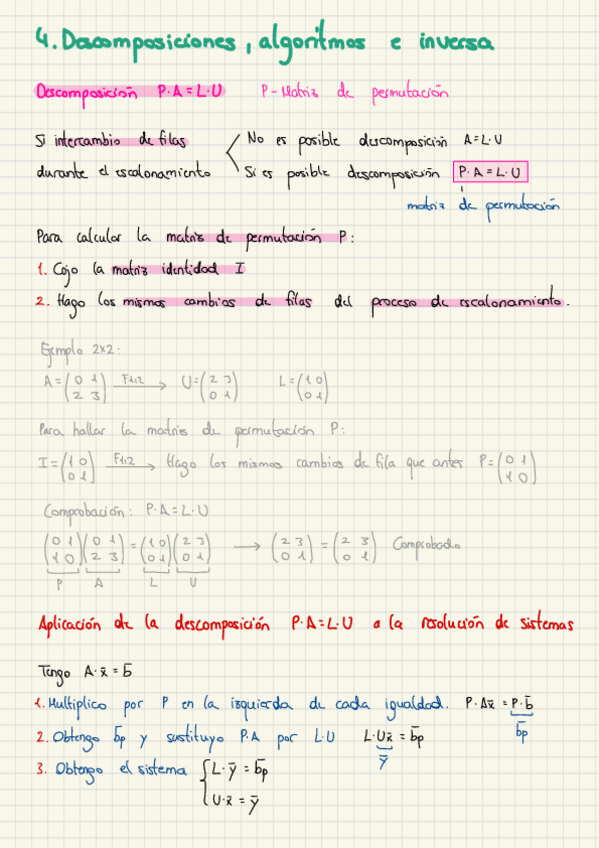 4. Descomposiciones, algoritmos e inversa
Descomposición P·A = L·U P - Matriz de permutación
Si intercambio de filas No es posible descomposición A = L·U
durante el escalonamiento Si es posible descomposición P·A = L·U
matriz de permutación
Para calcular la matriz de permutación P:
1. Cojo la matriz identidad I
2. Hago los mismos cambios de filas del proceso de escalonamiento.
Ejemplo 2x2:
A = (0 1 / 2 3) F1,2 → U = (2 3 / 0 1) L = (1 0 / 0 1)
Para hallar la matriz de permutación P:
I = (1 0 / 0 1) F1,2 → Hago los mismos cambios de fila que antes P = (0 1 / 1 0)
Comprobación: P·A = L·U
(0 1 / 1 0)(0 1 / 2 3) = (1 0 / 0 1)(2 3 / 0 1) → (2 3 / 0 1) = (2 3 / 0 1) Comprobado
P A L U
Aplicación de la descomposición P·A = L·U a la resolución de sistemas
Tengo A·x̄ = b̄
1. Multiplico por P en la izquierda de cada igualdad. P·Ax̄ = P·b̄
b̄p
2. Obtengo b̄p y sustituyo P·A por L·U L·Ux̄ = b̄p
ȳ
3. Obtengo el sistema { L·ȳ = b̄p
U·x̄ = ȳ